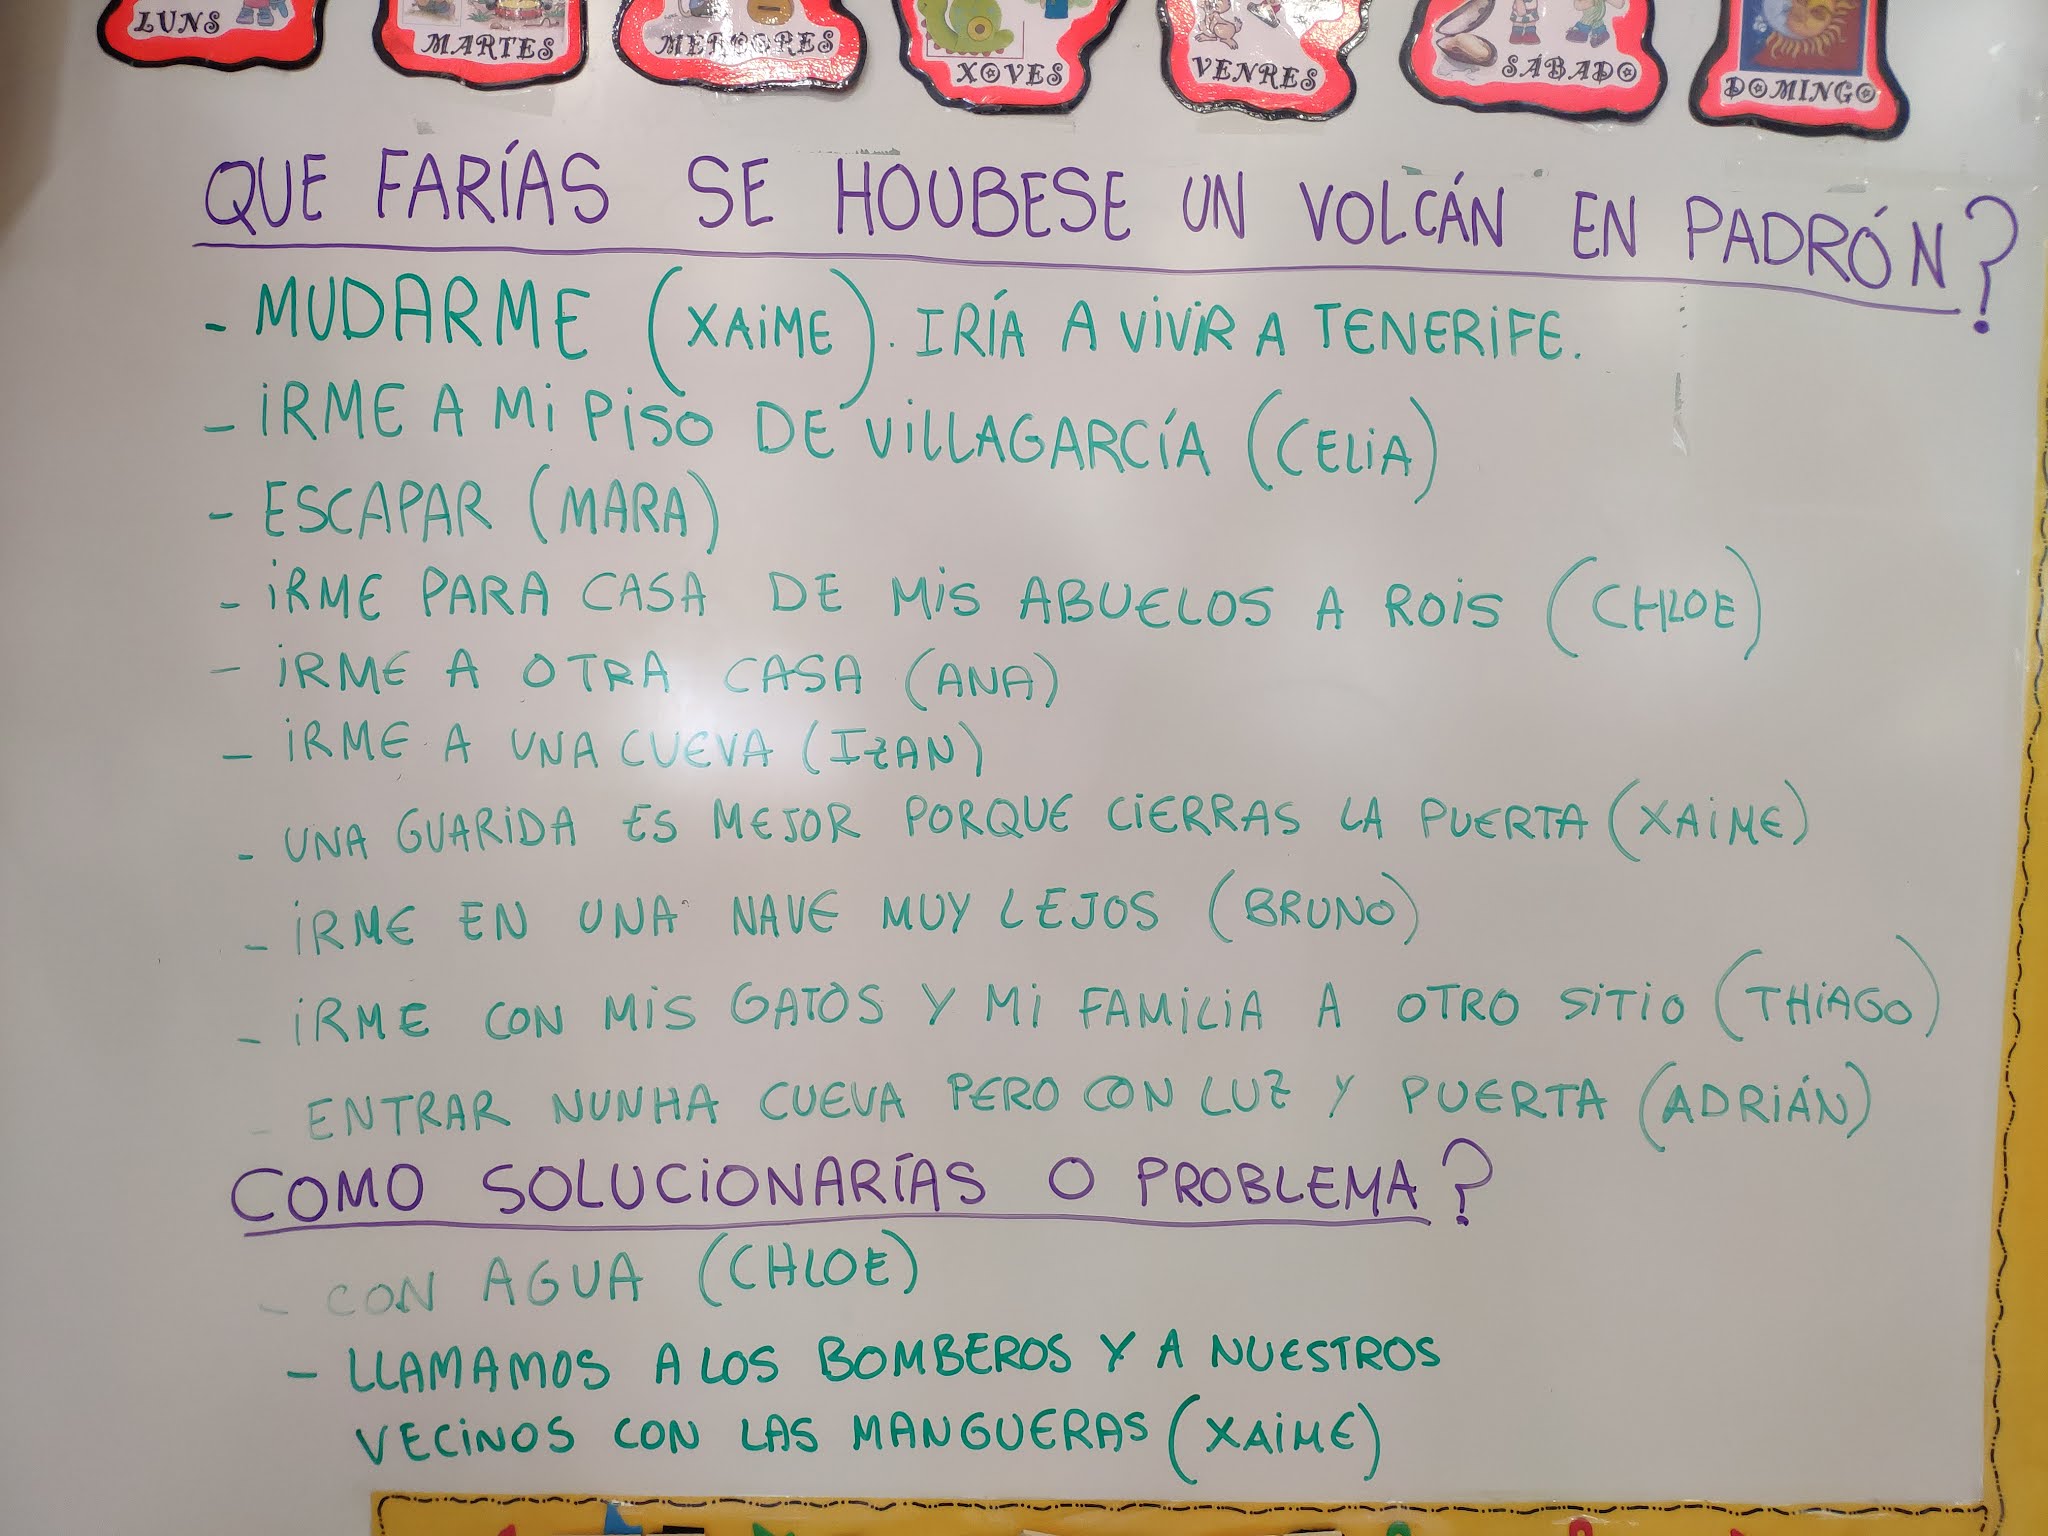 LUNS
MARTES
MÉRCORES
XOVES
VENRES
SÁBADO
DOMINGO
QUE FARÍAS SE HOUBESE UN VOLCÁN EN PADRÓN?
- MUDARME (XAIME). IRÍA A VIVIR A TENERIFE.
- IRME A MI PISO DE VILLAGARCÍA (CELIA)
- ESCAPAR (MARA)
- IRME PARA CASA DE MIS ABUELOS A ROIS (CHLOE)
- IRME A OTRA CASA (ANA)
- IRME A UNA CUEVA (IZAN)
- UNA GUARIDA ES MEJOR PORQUE CIERRAS LA PUERTA (XAIME)
- IRME EN UNA NAVE MUY LEJOS (BRUNO)
- IRME CON MIS GATOS Y MI FAMILIA A OTRO SITIO (THIAGO)
- ENTRAR NUNHA CUEVA PERO CON LUZ Y PUERTA (ADRIÁN)
COMO SOLUCIONARÍAS O PROBLEMA?
- CON AGUA (CHLOE)
- LLAMAMOS A LOS BOMBEROS Y A NUESTROS
VECINOS CON LAS MANGUERAS (XAIME)